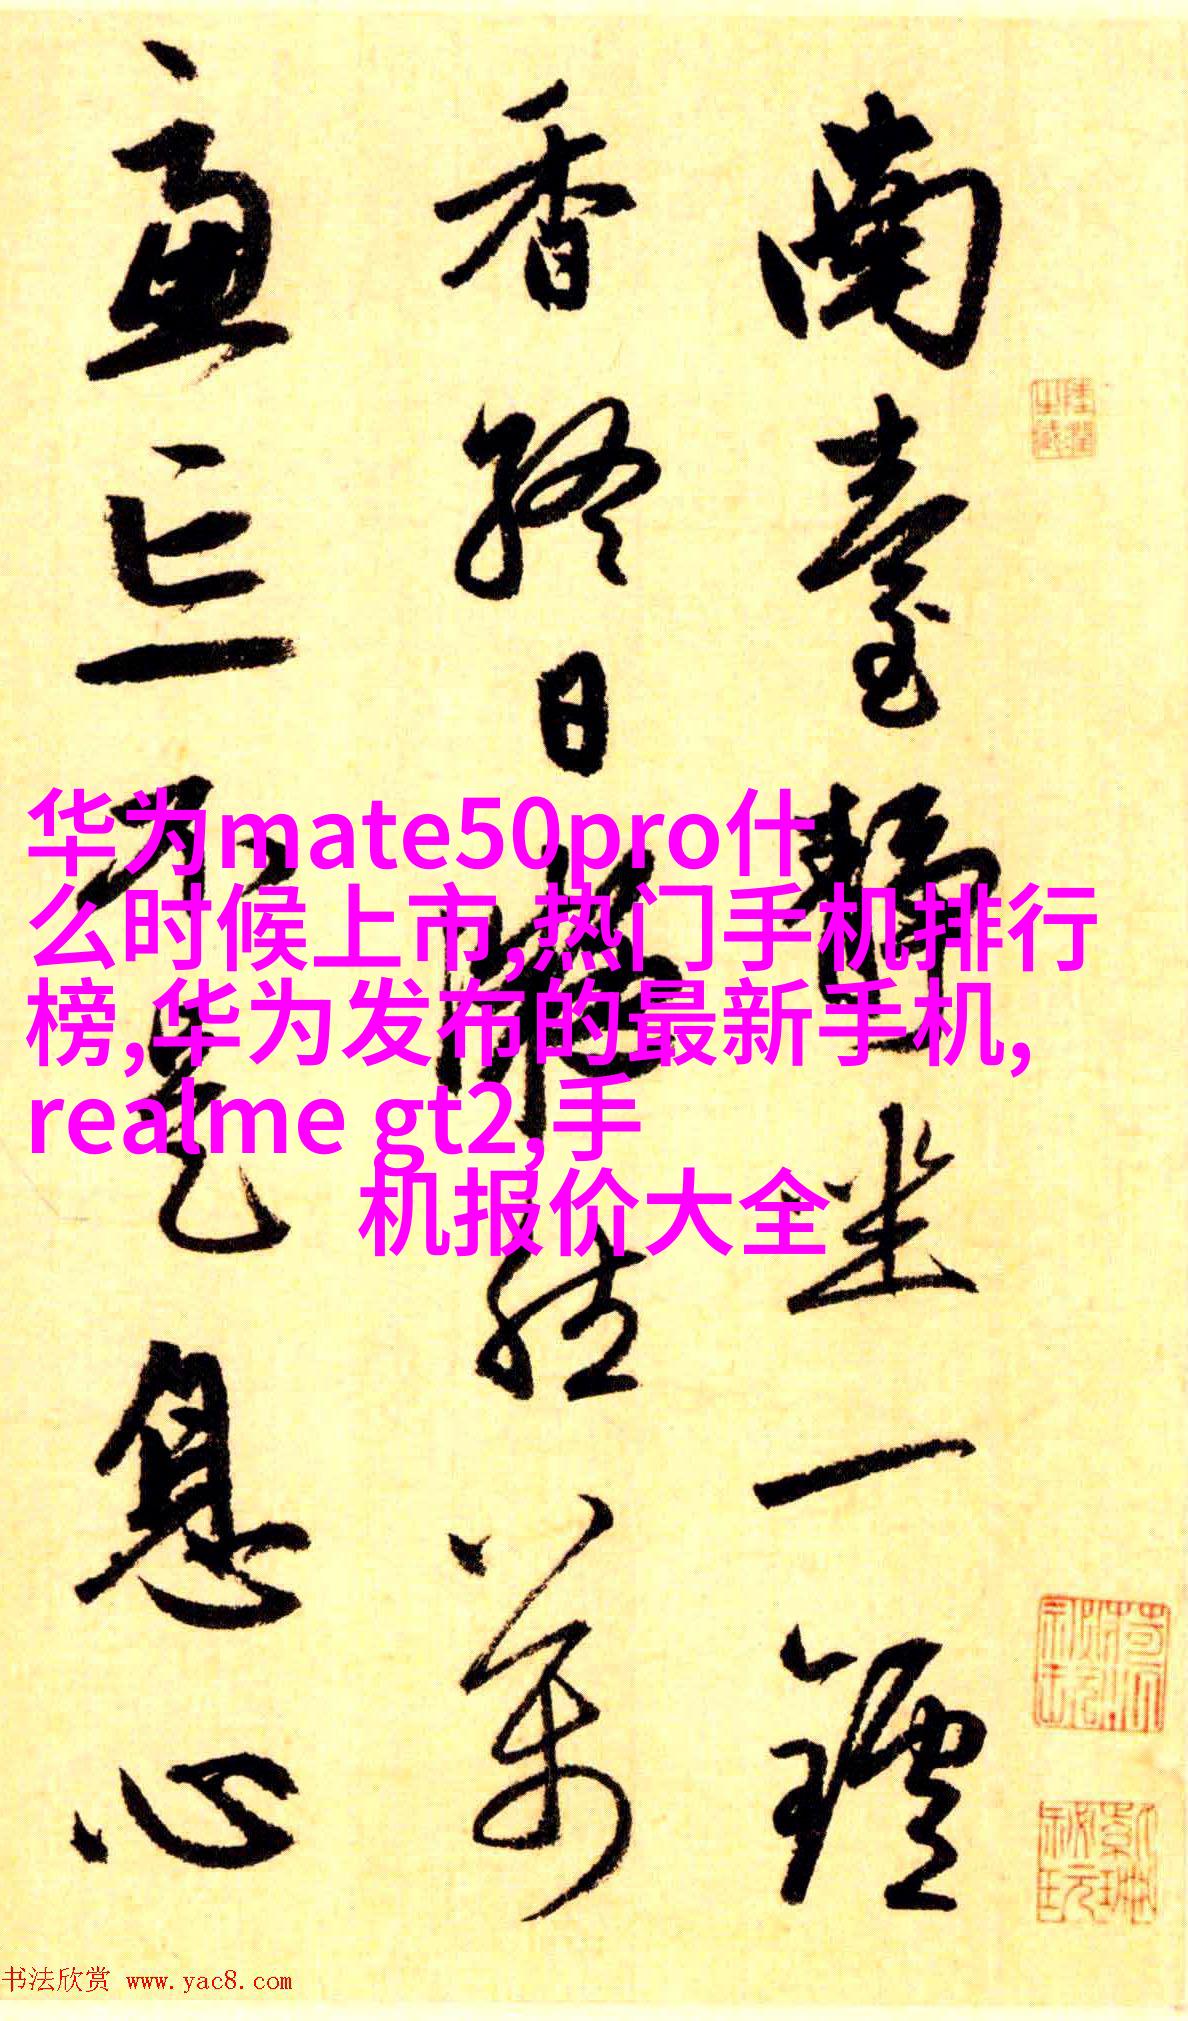 南臺靜坐一鑪
香終日凝然萬
慮亡不是息心
华为mate50pro什
么时候上市,热门手机排行
榜,华为发布的最新手机,
realme gt2,手
机报价大全
书法欣赏 www.yac8.com